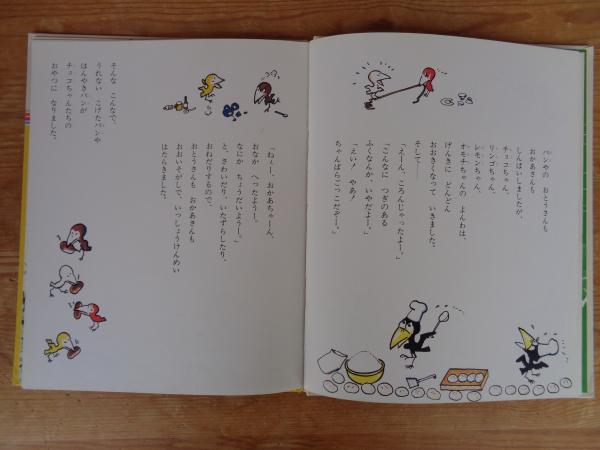 パンやの おとうさんも
おかあさんも
しんぱいしましたが、
チョコちゃん、
リンゴちゃん、
レモンちゃん、
オモチちゃんの よんわは、
げんきに どんどん
おおきくなって いきました。
そして――
「えーん、ころんじゃったよー。」
「こんなに つぎのある
ふくなんか、いやだよー。」
「えい! やあ!
ちゃんばらごっこだぞー。」
「ねぇー、おかあちゃーん、
おなか へったようー。
なにか ちょうだいようー。」
と、さわいだり、いたずらしたり、
おねだりするので、
おとうさんも おかあさんも
おおいそがしで、いっしょうけんめい
はたらきました。
そんな こんなで、
うれない こげたパンや
はんやきパンが
チョコちゃんたちの
おやつに なりました。